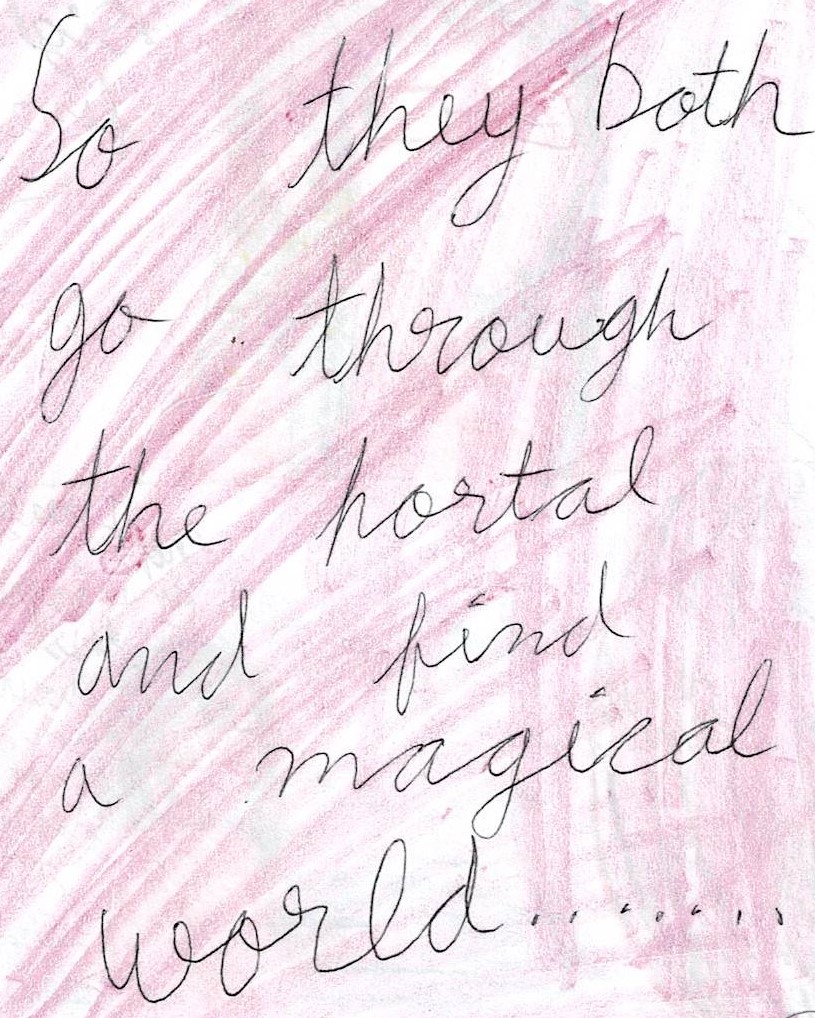 So they both
go through
the portal
and find
a magical
world........